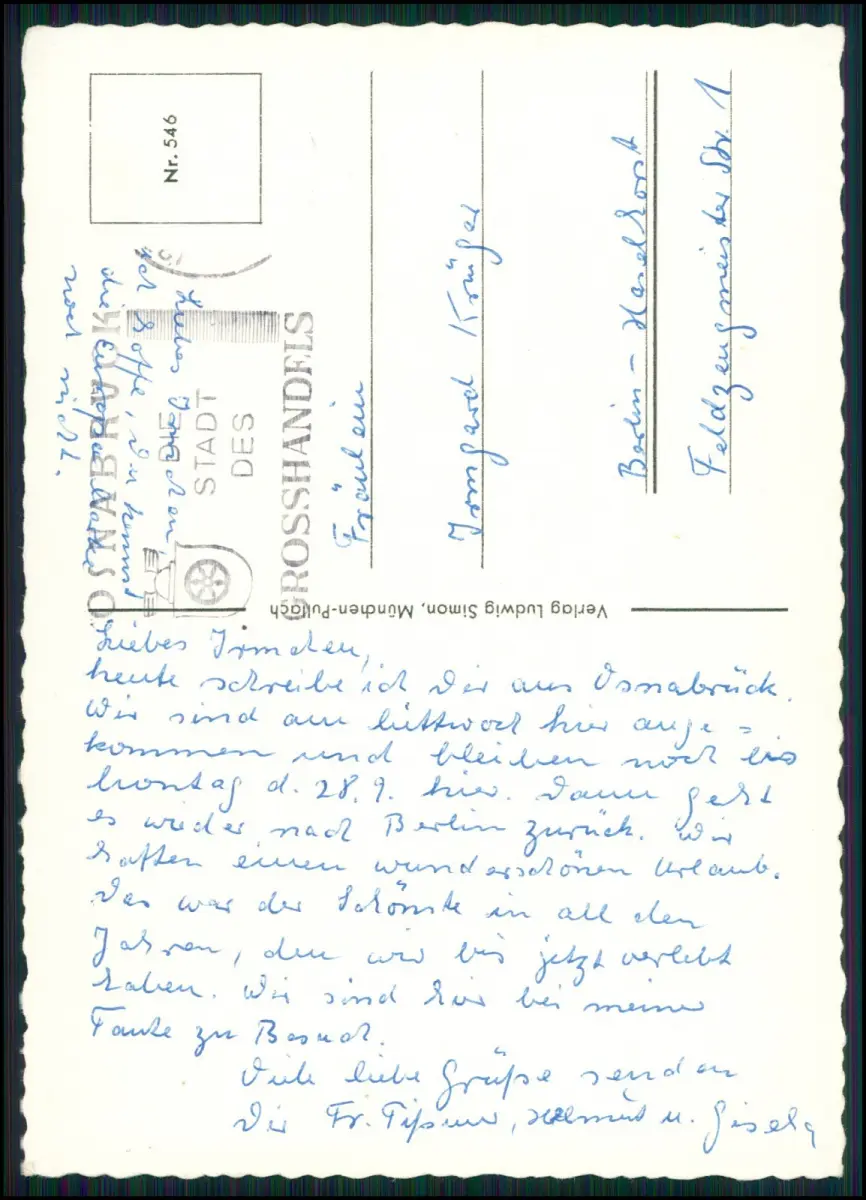 Nr. 546
OSNABRÜCK
DIE
STADT
DES
GROSSHANDELS
Liebes Irmchen,
ich hoffe, du kennst
die Europa Marke
noch nicht.
Fräulein
Irmgard Krüger
Berlin - Haselhorst
Feldzeugmeister Str. 1
Verlag Ludwig Simon, München-Pullach
Liebes Irmchen,
heute schreibe ich Dir aus Osnabrück.
Wir sind am Mittwoch hier ange=
kommen und bleiben noch bis
Montag d. 28.9. hier. Dann geht
es wieder nach Berlin zurück. Wir
hatten einen wunderschönen Urlaub.
Das war der Schönste in all den
Jahren, den wir bis jetzt verlebt
haben. Wir sind hier bei meiner
Tante zu Besuch.
Viele liebe Grüße senden
Dir Fr. Helmut u. Gisela